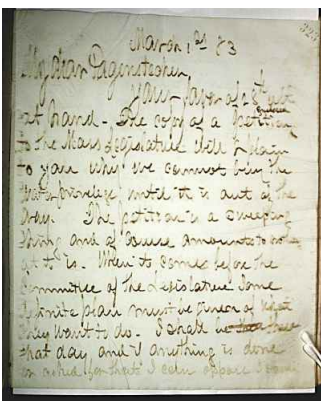 March 1st 83
My dear Pagenstecher,
Your favor of 28th ult
at hand - The copy of a petition
to the Mass Legislature will explain
to you why we cannot buy the
water privilege until it is out of the
way. The petition is a sweeping
thing and of course amounts to
as it is. When it comes before the
Committee of the Legislature some
definite plan must be given of what
they want to do. I shall be there
that day and if anything is done
or asked for that I can oppose I shall